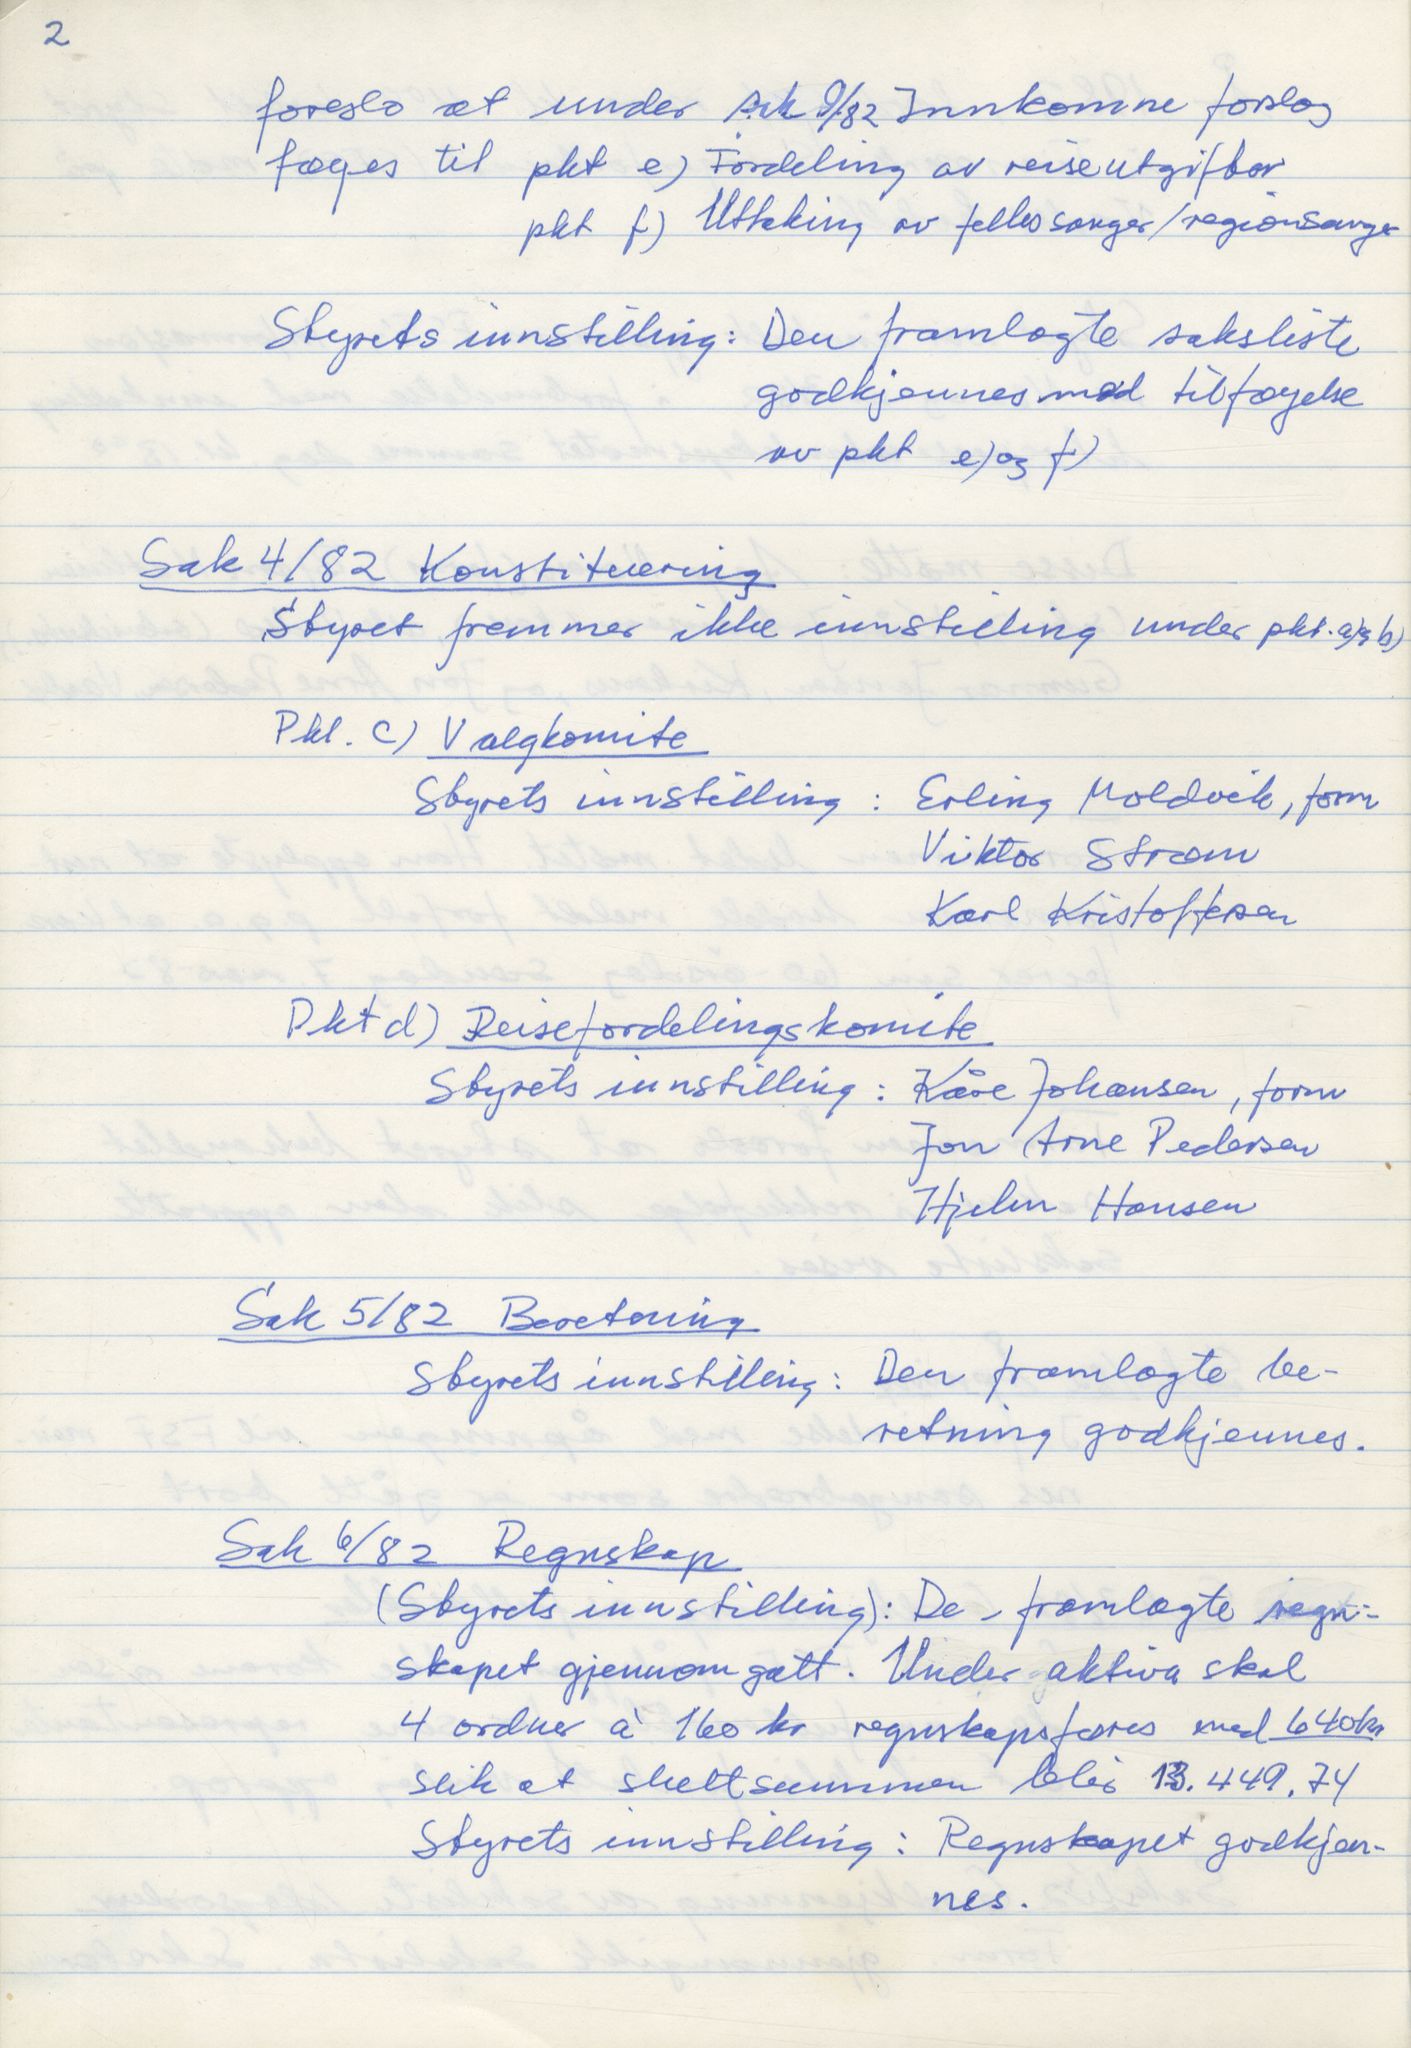 2
foreslo at under sak 9/82 Innkomne forslag
føyes til pkt e) Fordeling av reiseutgifter
pkt f) Uttaking av fellessanger/regionsanger
Styrets innstilling: Den framlagte saksliste
godkjennes med tilføyelse
av pkt e) og f)
Sak 4/82 Konstituering
Styret fremmer ikke innstilling under pkt. a) og b)
Pkt. c) Valgkomite
Styrets innstilling: Erling Moldvik, form
Viktor Strøm
Karl Kristoffersen
Pkt d) Reisefordelingskomite
Styrets innstilling: Kåre Johansen, form
Jon Arne Pedersen
Hjelm Hansen
Sak 5/82 Beretning
Styrets innstilling: Den framlagte be-
retning godkjennes.
Sak 6/82 Regnskap
(Styrets innstilling): De framlagte regn-
skapet gjennomgått. Under aktiva skal
4 ordner à 160 kr regnskapsføres med 640 kr
slik at sluttsummen blir 13.449.74
Styrets innstilling: Regnskapet godkjen-
nes.